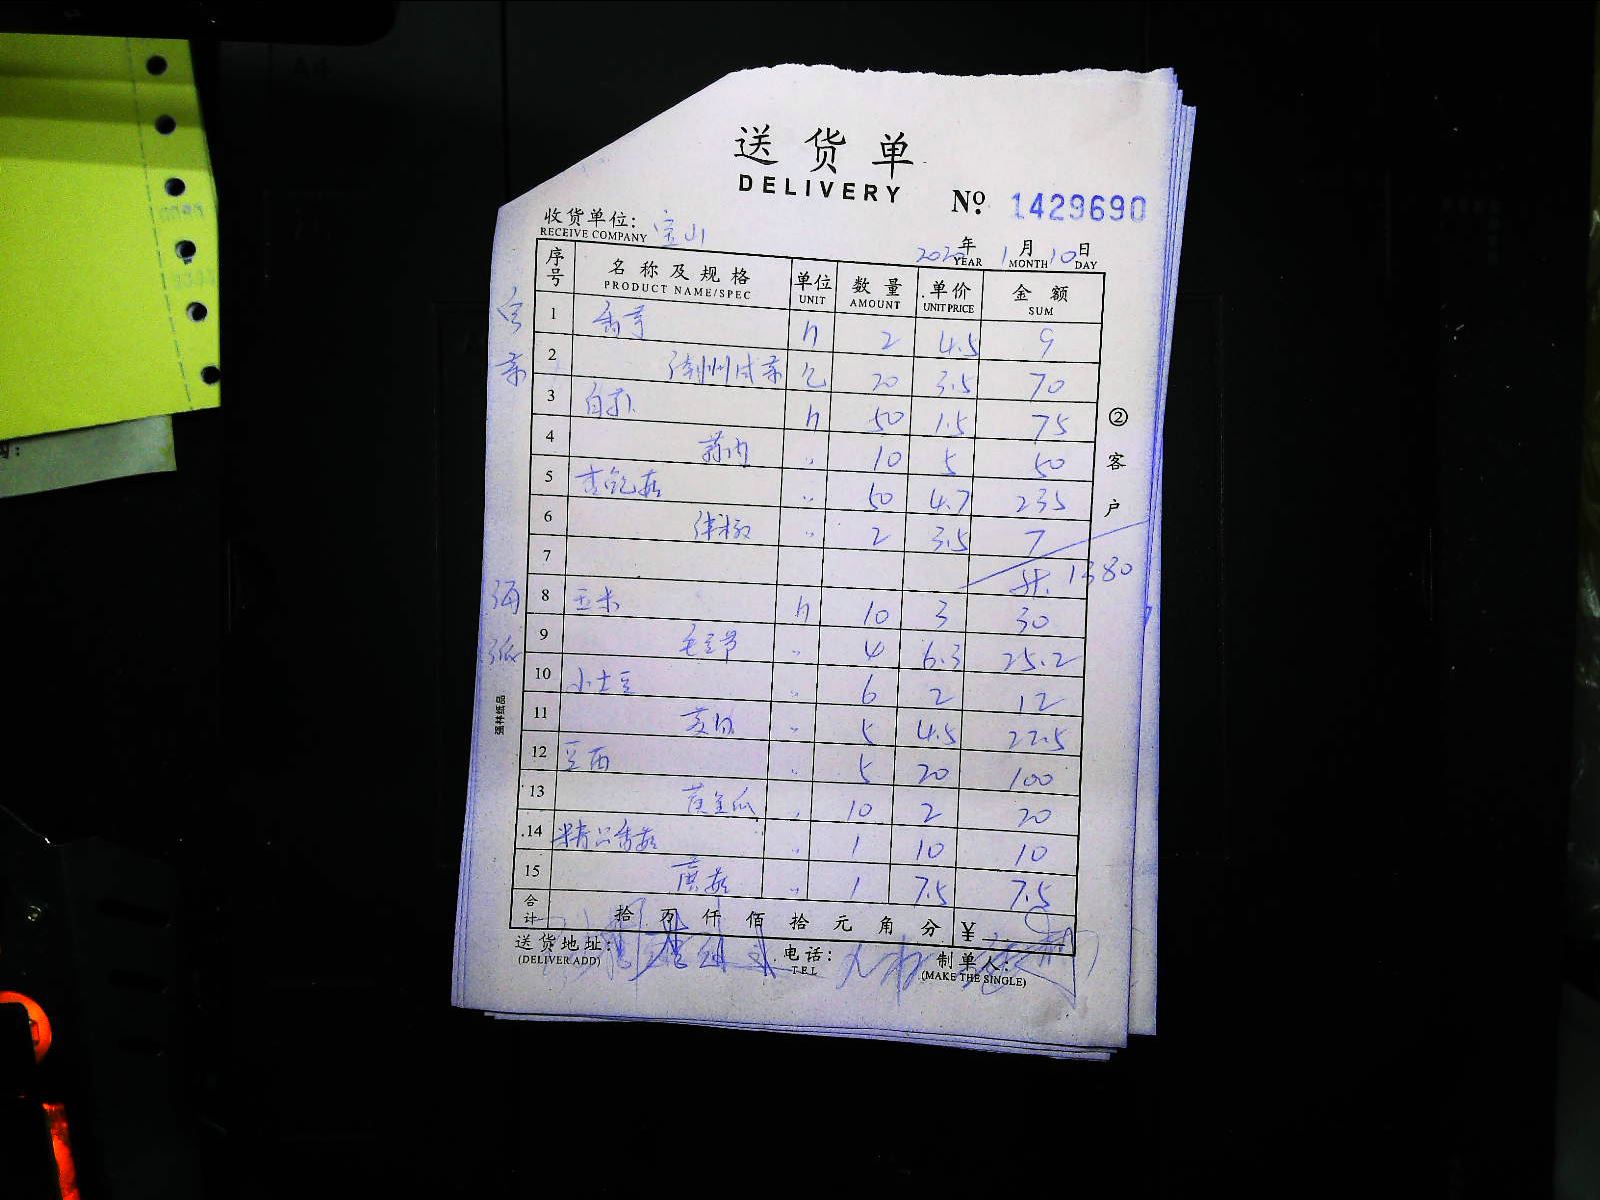 送货单
DELIVERY
№ 1429690
收货单位: 宝山
RECEIVE COMPANY
2022年 1月 10日
YEAR MONTH DAY
序号 名称及规格 单位 数量 单价 金额
PRODUCT NAME/SPEC UNIT AMOUNT UNIT PRICE SUM
1 香芋 斤 2 4.5 9
2 潮州咸菜 包 20 3.5 70
3 白萝卜 斤 50 1.5 75
4 蒜肉 〃 10 5 50
5 杏鲍菇 〃 50 4.7 235
6 〃 2 3.5 7
7 共1380
8 玉米 斤 10 3 30
9 毛豆节 〃 4 6.3 25.2
10 小土豆 〃 6 2 12
11 〃 5 4.5 22.5
12 豆苗 〃 5 20 100
13 黄金瓜 〃 10 2 20
14 精品香菇 〃 1 10 10
15 〃 1 7.5 7.5
合计 拾 万 仟 佰 拾 元 角 分 ¥
送货地址: 电话: 制单人:
(DELIVER ADD) TEL (MAKE THE SINGLE)
②客户
强林纸品
A4